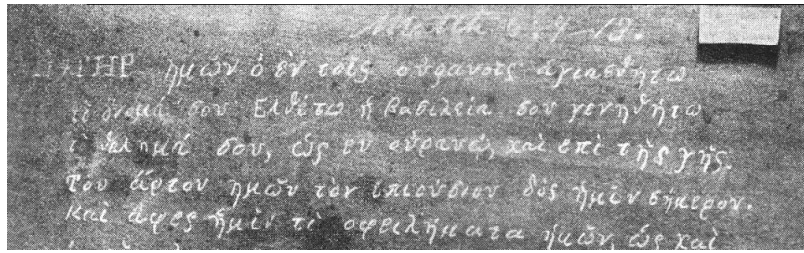 Matth 6. 9-13.
ΠΑΤΗΡ ἡμών ὁ ἐν τοῖς οὐρανοῖς ἁγιασθήτω
τὸ ὄνομά σου Ελθέτω ἡ βασιλεία σου γενηθήτω
τὸ θέλημά σου, ὡς εν οὐρανῷ, καὶ επὶ τῆς γῆς.
Τον ἄρτον ημῶν τὸν επιούσιον δὸς ἡμῖν σήμερον.
Καὶ ἄφες ἡμῖν τὰ οφειλήματα ἡμῶν, ὡς καὶ